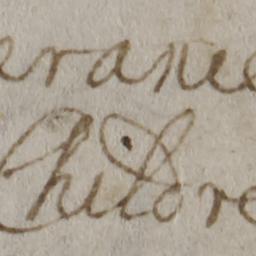 erance
Childre